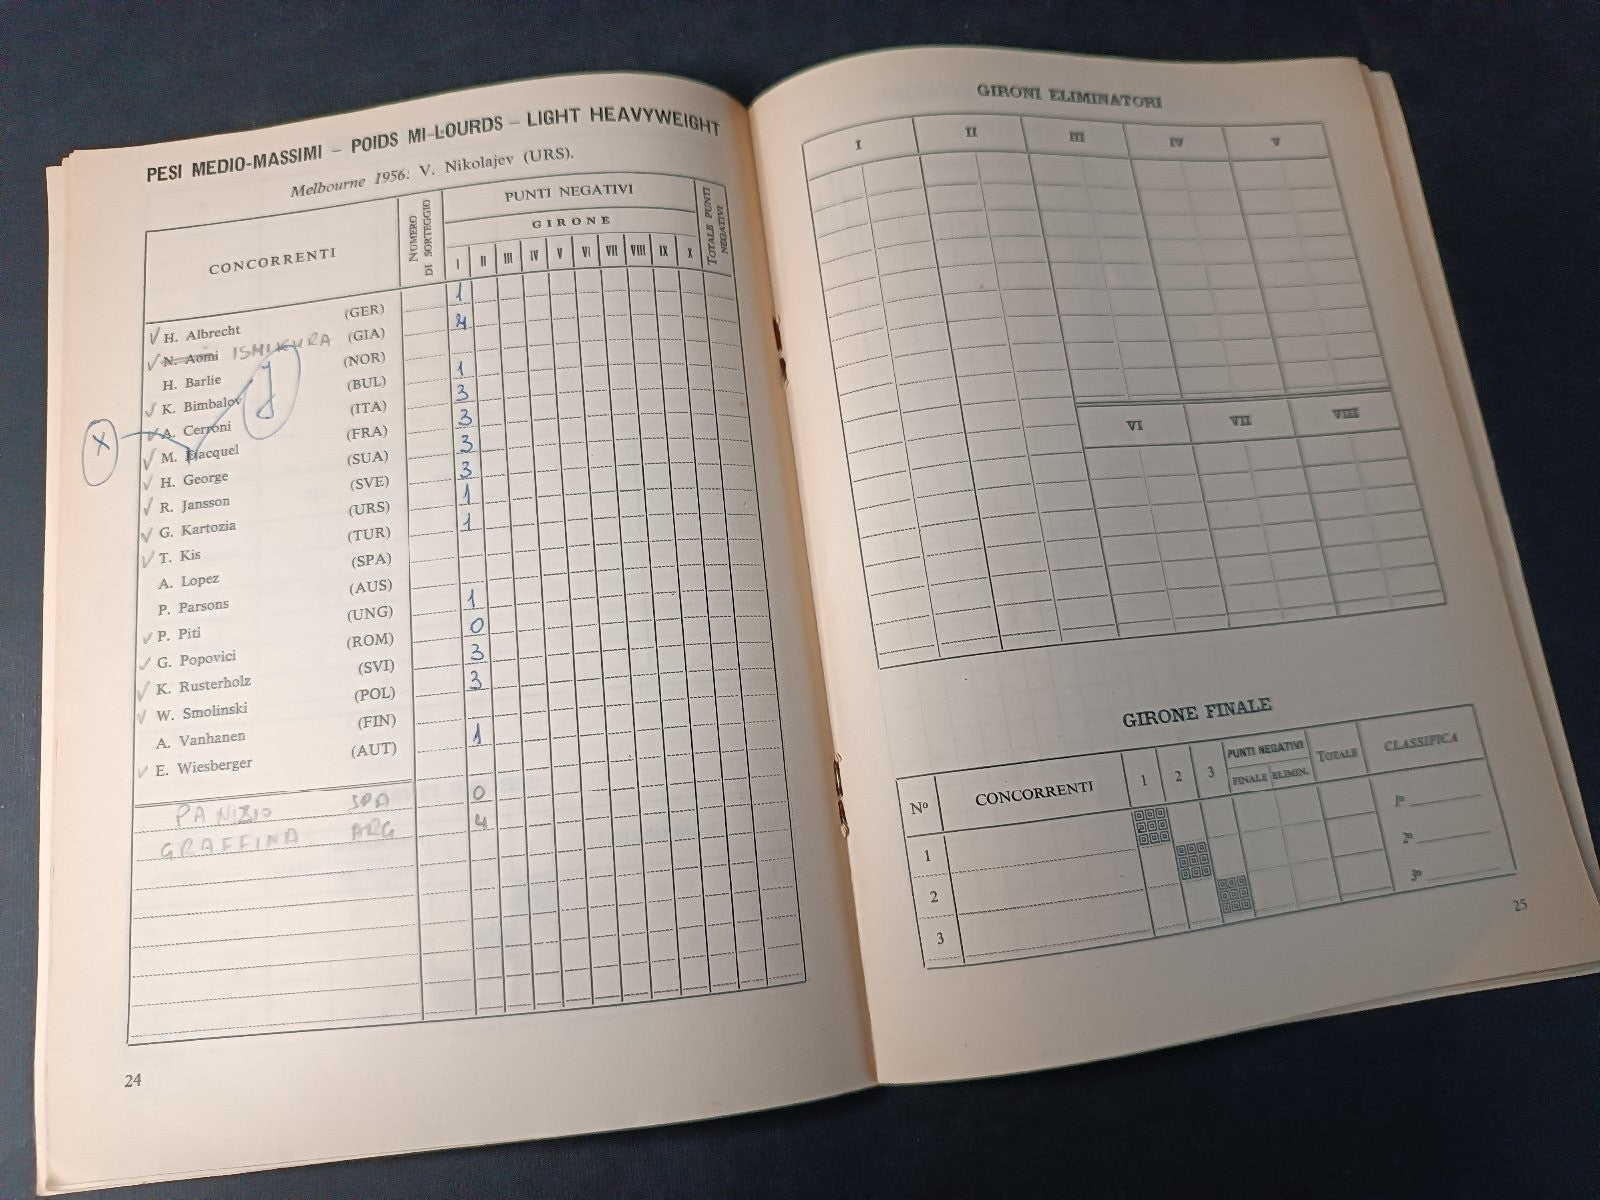 PESI MEDIO-MASSIMI – POIDS MI-LOURDS – LIGHT HEAVYWEIGHT
Melbourne 1956: V. Nikolajev (URS).
CONCORRENTI NUMERO DI SORTEGGIO PUNTI NEGATIVI TOTALE PUNTI NEGATIVI
GIRONE
I II III IV V VI VII VIII IX X
✓ H. Albrecht (GER) 1
✓ N. Aomi ISHIKURA (GIA) 4
H. Barlie (NOR)
✓ K. Bimbalov (BUL) 1
X ✓ A. Cerroni (ITA) 3
✓ M. Jacquel (FRA) 3
J
✓ H. George (SUA) 3
✓ R. Jansson (SVE) 3
✓ G. Kartozia (URS) 1
✓ T. Kis (TUR) 1
A. Lopez (SPA)
P. Parsons (AUS)
✓ P. Piti (UNG) 1
✓ G. Popovici (ROM) 0
✓ K. Rusterholz (SVI) 3
✓ W. Smolinski (POL) 3
A. Vanhanen (FIN)
✓ E. Wiesberger (AUT) 1
PANIZIO SPA 0
GRAFFINA ARG 4
24
GIRONI ELIMINATORI
I II III IV V
VI VII VIII
GIRONE FINALE
Nº CONCORRENTI 1 2 3 PUNTI NEGATIVI TOTALE CLASSIFICA
FINALE ELIMIN.
1 1º
2 2º
3 3º
25